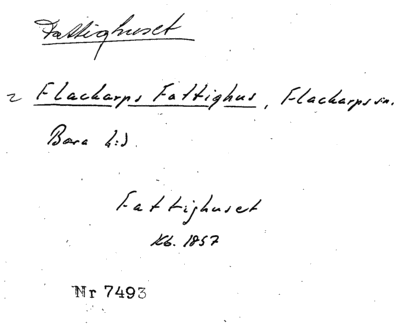 Fattighuset
= Flackarps Fattighus, Flackarps sn.
Bara h:d.
Fattighuset
Kb. 1857
Nr 7493